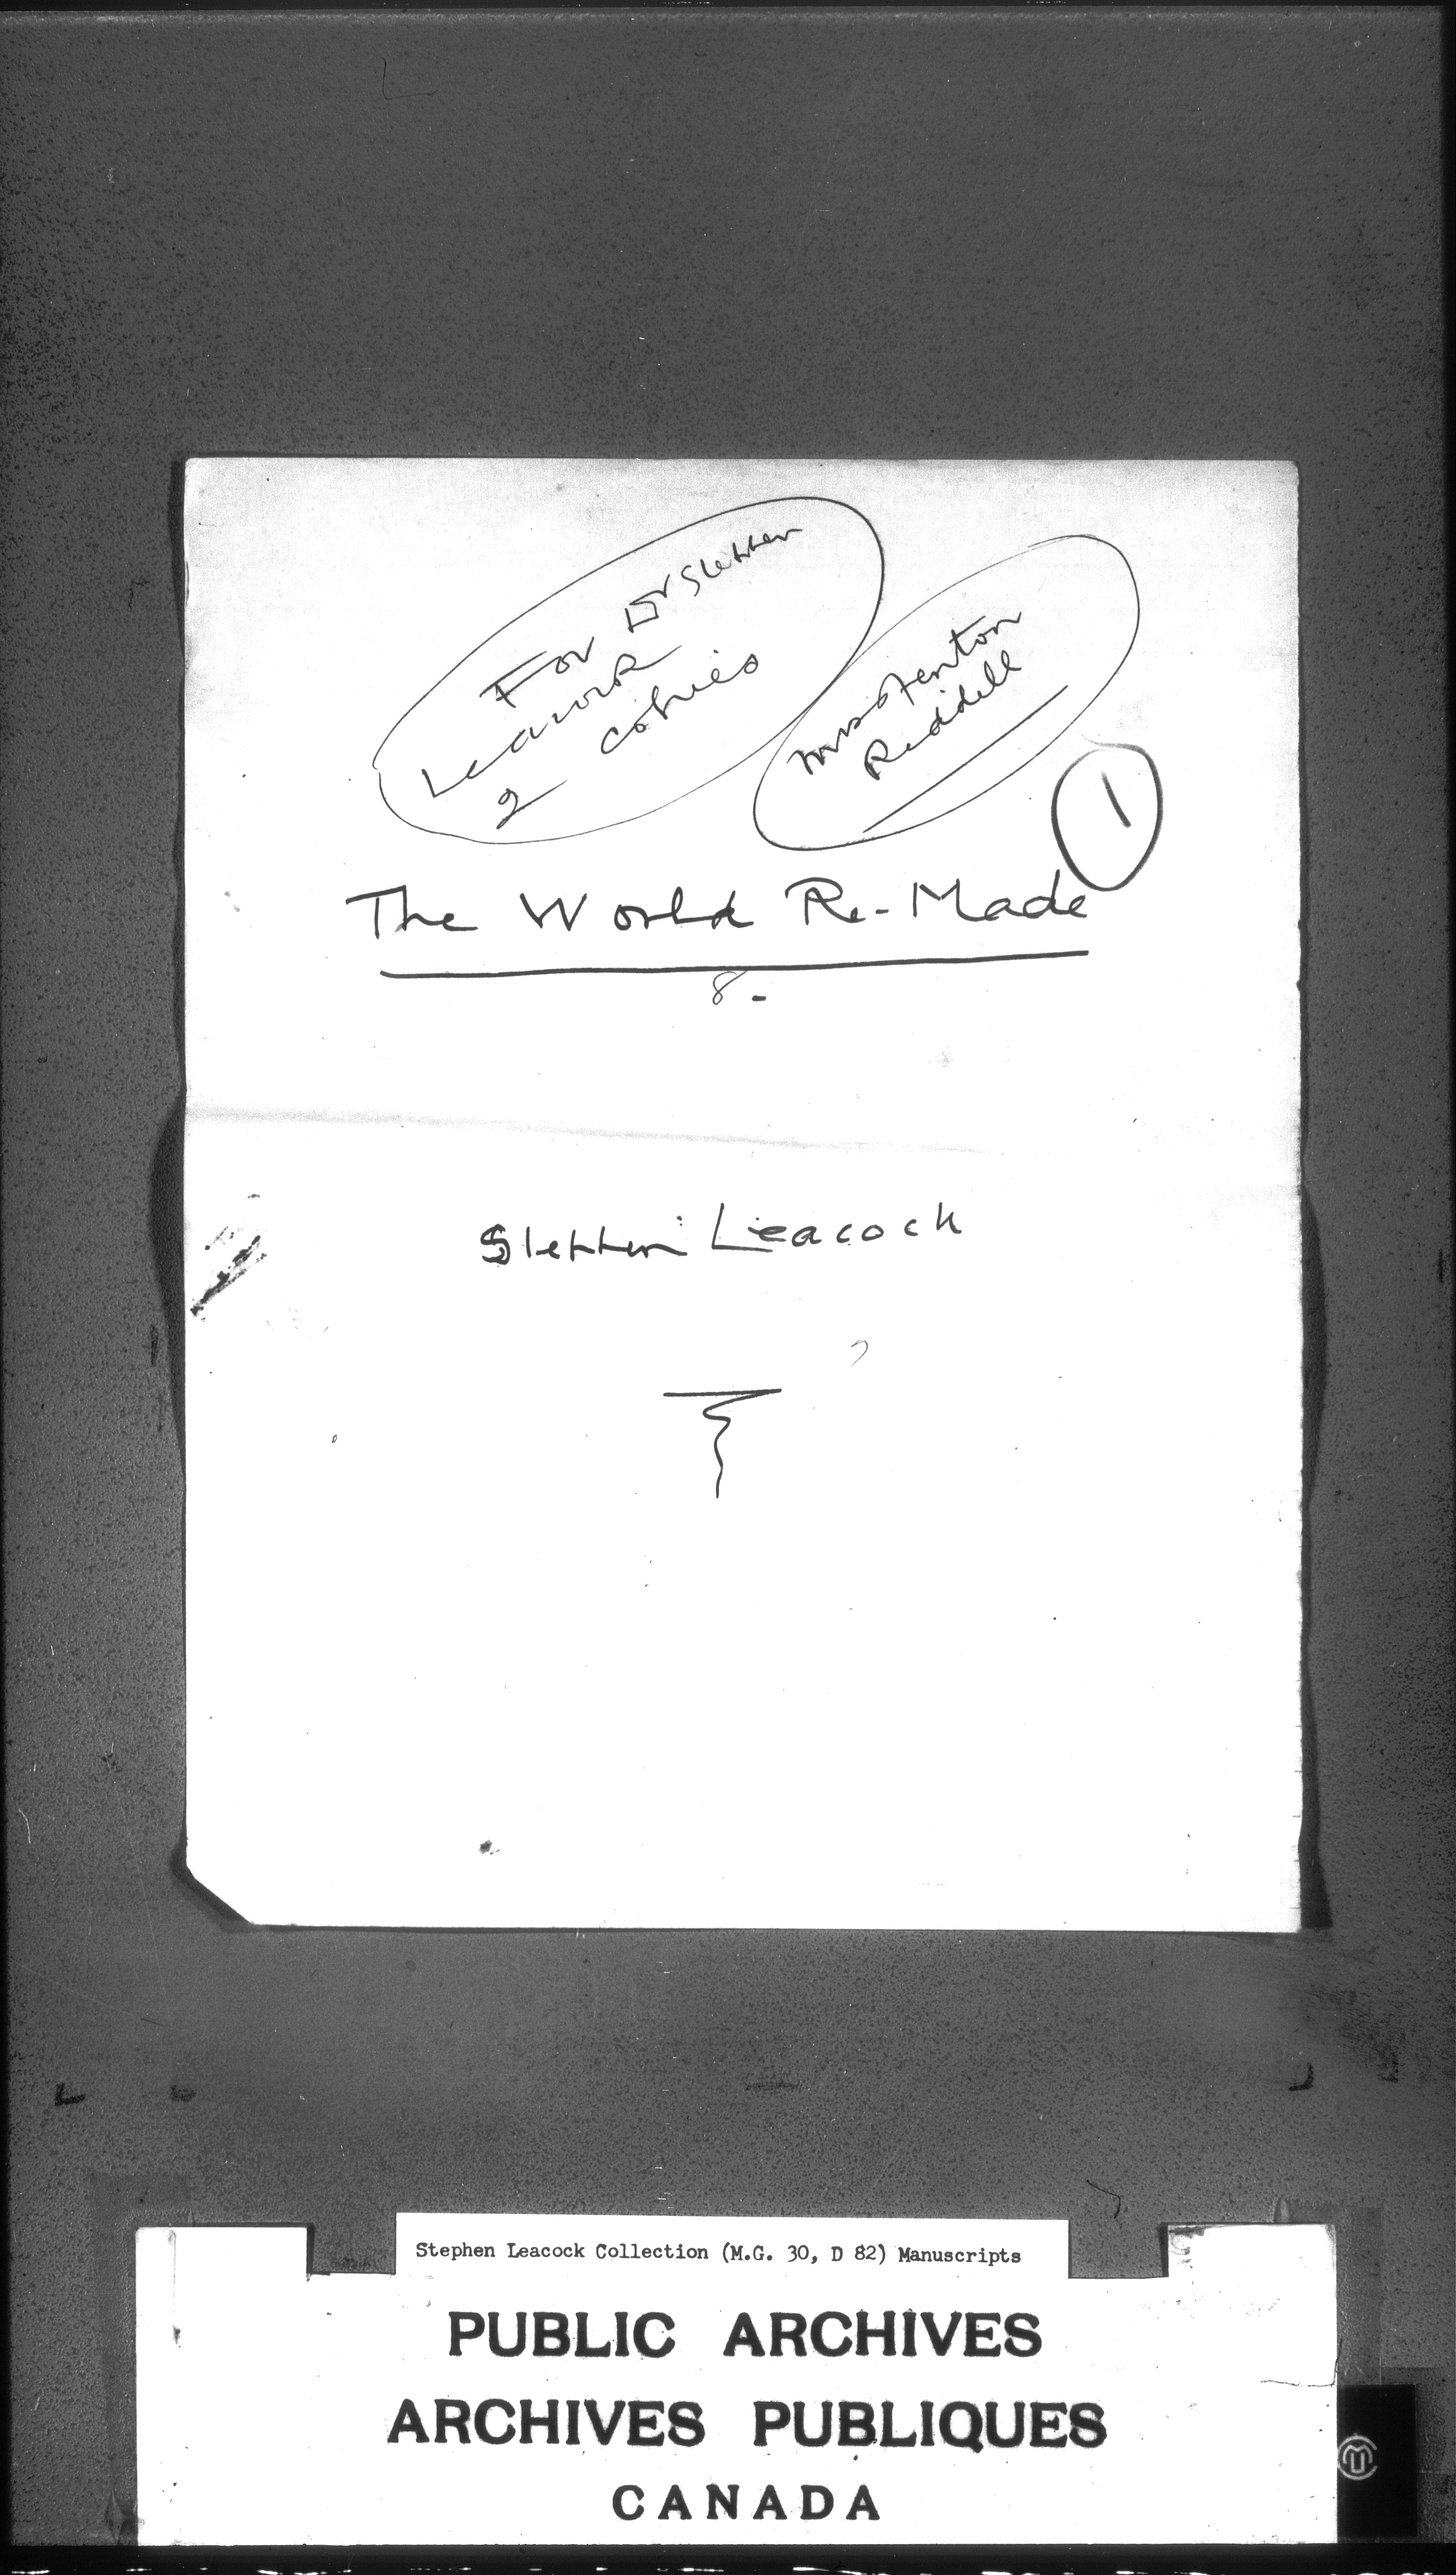 For Dr Stephen
Leacock
2 copies
Mrs Stenton
Riddell
1
The World Re-Made
8.-
Stephen Leacock
Stephen Leacock Collection (M.G. 30, D 82) Manuscripts
PUBLIC ARCHIVES
ARCHIVES PUBLIQUES
CANADA